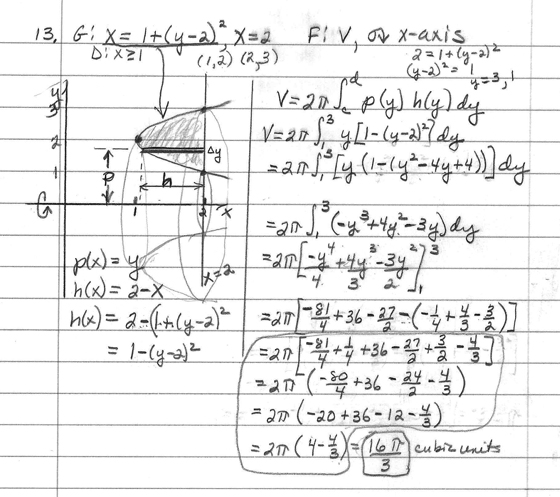 13. G: x = 1+(y-2)², x=2 F: V, or x-axis
D: x≥1 (1,2) (2,3)
2=1+(y-2)²
(y-2)²=1
y=3, 1
y
3
2
1
P
h
Δy
1
2
x
x=2
p(x) = y
h(x) = 2-x
h(x) = 2-(1+(y-2)²
= 1-(y-2)²
V=2π∫_c^d p(y) h(y) dy
V=2π∫_1^3 y[1-(y-2)²]dy
=2π∫_1^3 [y(1-(y²-4y+4))]dy
=2π∫_1^3 (-y³+4y²-3y)dy
=2π[-y⁴/4+4y³/3-3y²/2]_1^3
=2π[-81/4+36-27/2-(-1/4+4/3-3/2)]
=2π[-81/4+1/4+36-27/2+3/2-4/3]
=2π(-80/4+36-24/2-4/3)
=2π(-20+36-12-4/3)
=2π(4-4/3)=16π/3 cubic units